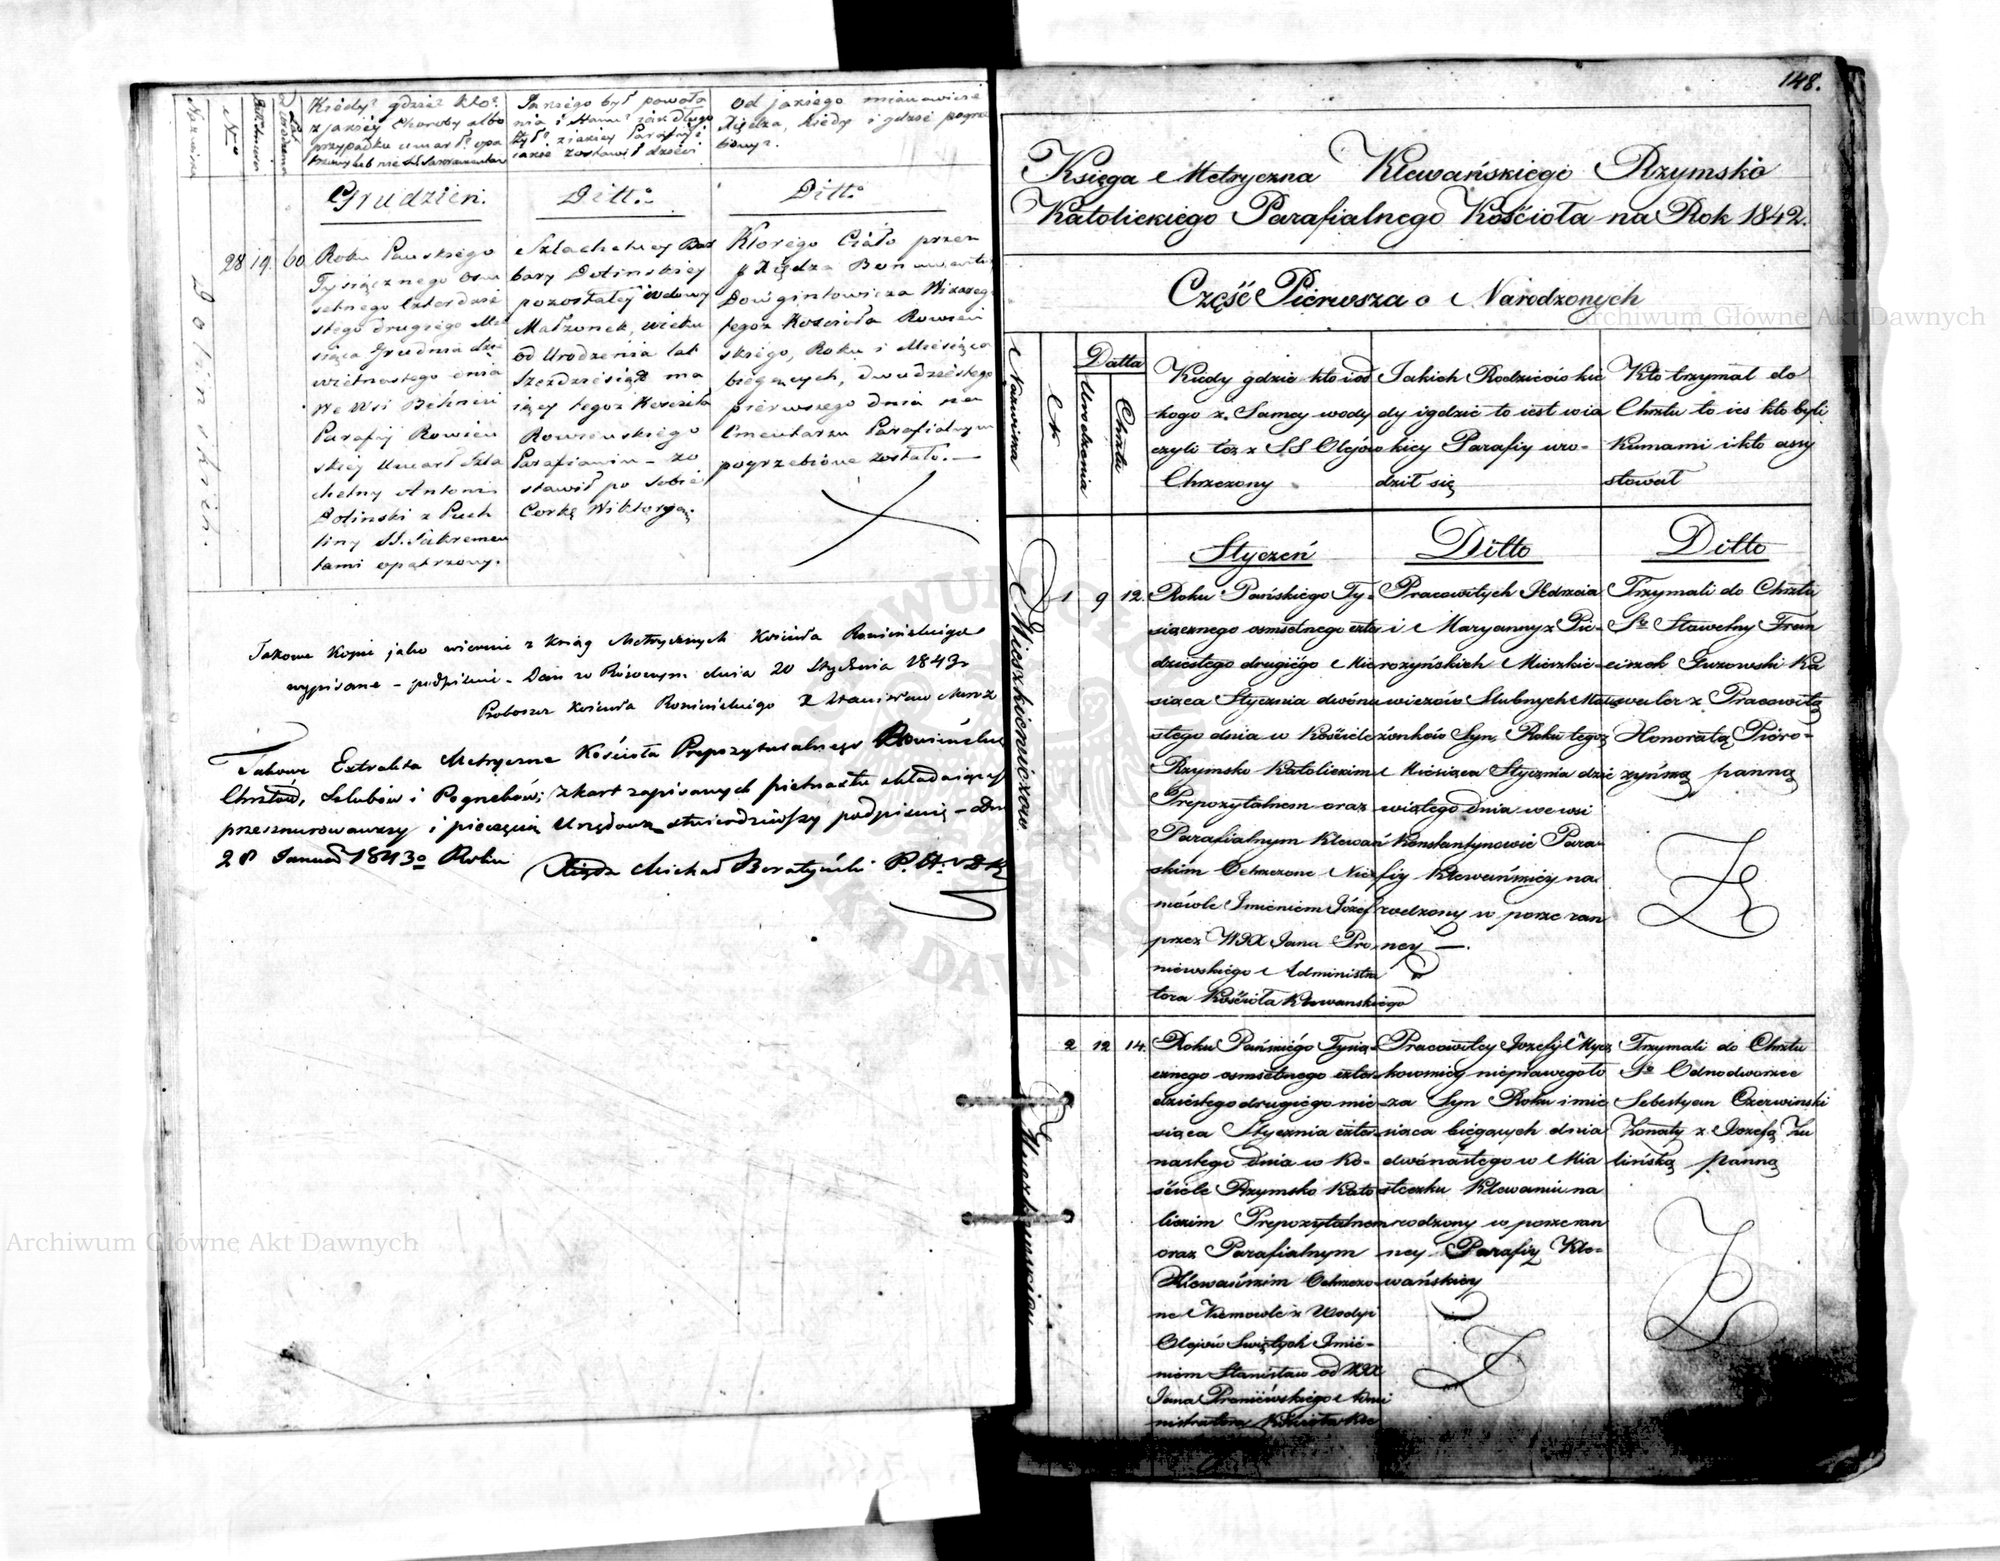 Nazwiska
No
Kiedy? gdzie? kto?
z jakiey Choroby albo
przypadku umarł? opa
trzony lub nie SS. Sakramentami
Jakiego był powoła
nia i Stanu? jak długo
żył? z jakiey Parafii? i
jakie zostawił dzieci
Od jakiego mianowicie
Xiędza, kiedy i gdzie pogrze
biony?
Grudzień.
Ditto
Ditto
Dolinskich.
28. 19. 60
Roku Pańskiego
Tysiącznego osm
setnego Czterdzie
stego drugiego Mie
siąca Grudnia dzie
wietnastego dnia
We Wsi
Parafij Rowień
skiey Umarł Szla
chetny Antoni
Dolinski z Puch
liny SS. Sakramen
tami opatrzony.
Szlachetney Bar
bary Dolinskiey
pozostałey wdowy
Małżonek, wieku
od Urodzenia lat
Szezdziesiąt ma
iący tegoż Kościoła
Rowienskiego
Parafianin – zo
stawił po sobie
Corkę Wiktoryą.
Ktorego Ciało przez
Xiędza Bonawentu
Dowgintowicza Wikarego
tegoż Kościoła Rowień
skiego, Roku i Miesiąca
biegących, dwudziestego
pierwszego dnia na
Cmentarzu Parafialnym
pogrzebione zostało. —
Takowe Kopie jako wiernie z Ksiąg Metrycznych Kościoła Rowieńskiego
wypisane – podpisuię – Dan w Rownym dnia 20 Stycznia 1843 r
Proboszcz Kościoła Rowieńskiego X Stanisław
Takowe Extrakta Metryczne Kościoła Prepozytualnego Rowieńskie
Chrztów, Szlubów i Pogrzebów; z kart zapisanych pietnastu składaiący
przesznurowawszy i pieczęcią Urzędową stwierdziwszy podpisuię – Dnia
28 Januar 1843o Roku Xiądz Michał Beratyński P. H. D
148.
Księga Metryczna Klewańskiego Rzymsko
Katolickiego Parafialnego Kościoła na Rok 1842.
Część Pierwsza o Narodzonych
Nazwiska
N
Datta
Urodzenia
Chrztu
Kiedy gdzie kto i od
kogo z Samey wody
czyli też z SS Olejów
Chrzczony
Jakich Rodziców kie
dy i gdzie to iest w ia
kiey Parafiy uro-
dził się
Kto trzymał do
Chrztu to ies kto byli
Kumami i kto assy
stował
Styczeń
Ditto
Ditto
Mieszkiewiczow
1 9 12.
Roku Pańskiego Ty-
siącznego osmsetnego czter
dziestego drugiego Mie
siąca Stycznia dwóna
stego dnia w Kościele
Rzymsko Katolickim
Prepozytalnem oraz
Parafialnym Klewań
skim Ochrzczone Nie
mówle Imieniem Józef
przez WJX Jana Pro-
niewskiego Administra
tora Kościoła Klewanskiego
Pracowitych Jędrzeia
i Maryanny z Pie-
rożyńskich Mieszkie-
wiczów Slubnych Mał
żonków Syn, Roku tegoż
Miesiąca Stycznia dzie
wiątego dnia we wsi
Konstantynowie Para
fiy Klewańskiey na
rodzony w porze ran
ney —.
Trzymali do Chrztu
So Sławetny Fran
ciszek Guzowski Ka
waler z Pracowitą
Honoratą Piero-
żyńską panną
2 12 14.
Roku Pańskiego Tysią
cznego osmsetnego czter
dziestego drugiego mie
siąca Stycznia czter
nastego dnia w Ko-
ściele Rzymsko Kato
lickim Prepozytalnem
oraz Parafialnym
Klewańskim Ochrzczo-
ne Niemowle z Wody i
Olejów Swiętych Imie-
niem Stanisław od WJX
Jana Proniewskiego Admi
nistratora Kościoła Kle
Pracowitey Jozefy
nieprawego ło
ża Syn Roku i mie
siąca biegących dnia
dwónastego w Mia
steczku Klewaniu na
rodzony w porze ran
ney Parafiy Kle-
wańskiey
Trzymali do Chrztu
So Odnodworzec
Sebestyan Czerwinski
Żonaty z Jozefą Zu
lińską panną
Archiwum Główne Akt Dawnych
Archiwum Główne Akt Dawnych